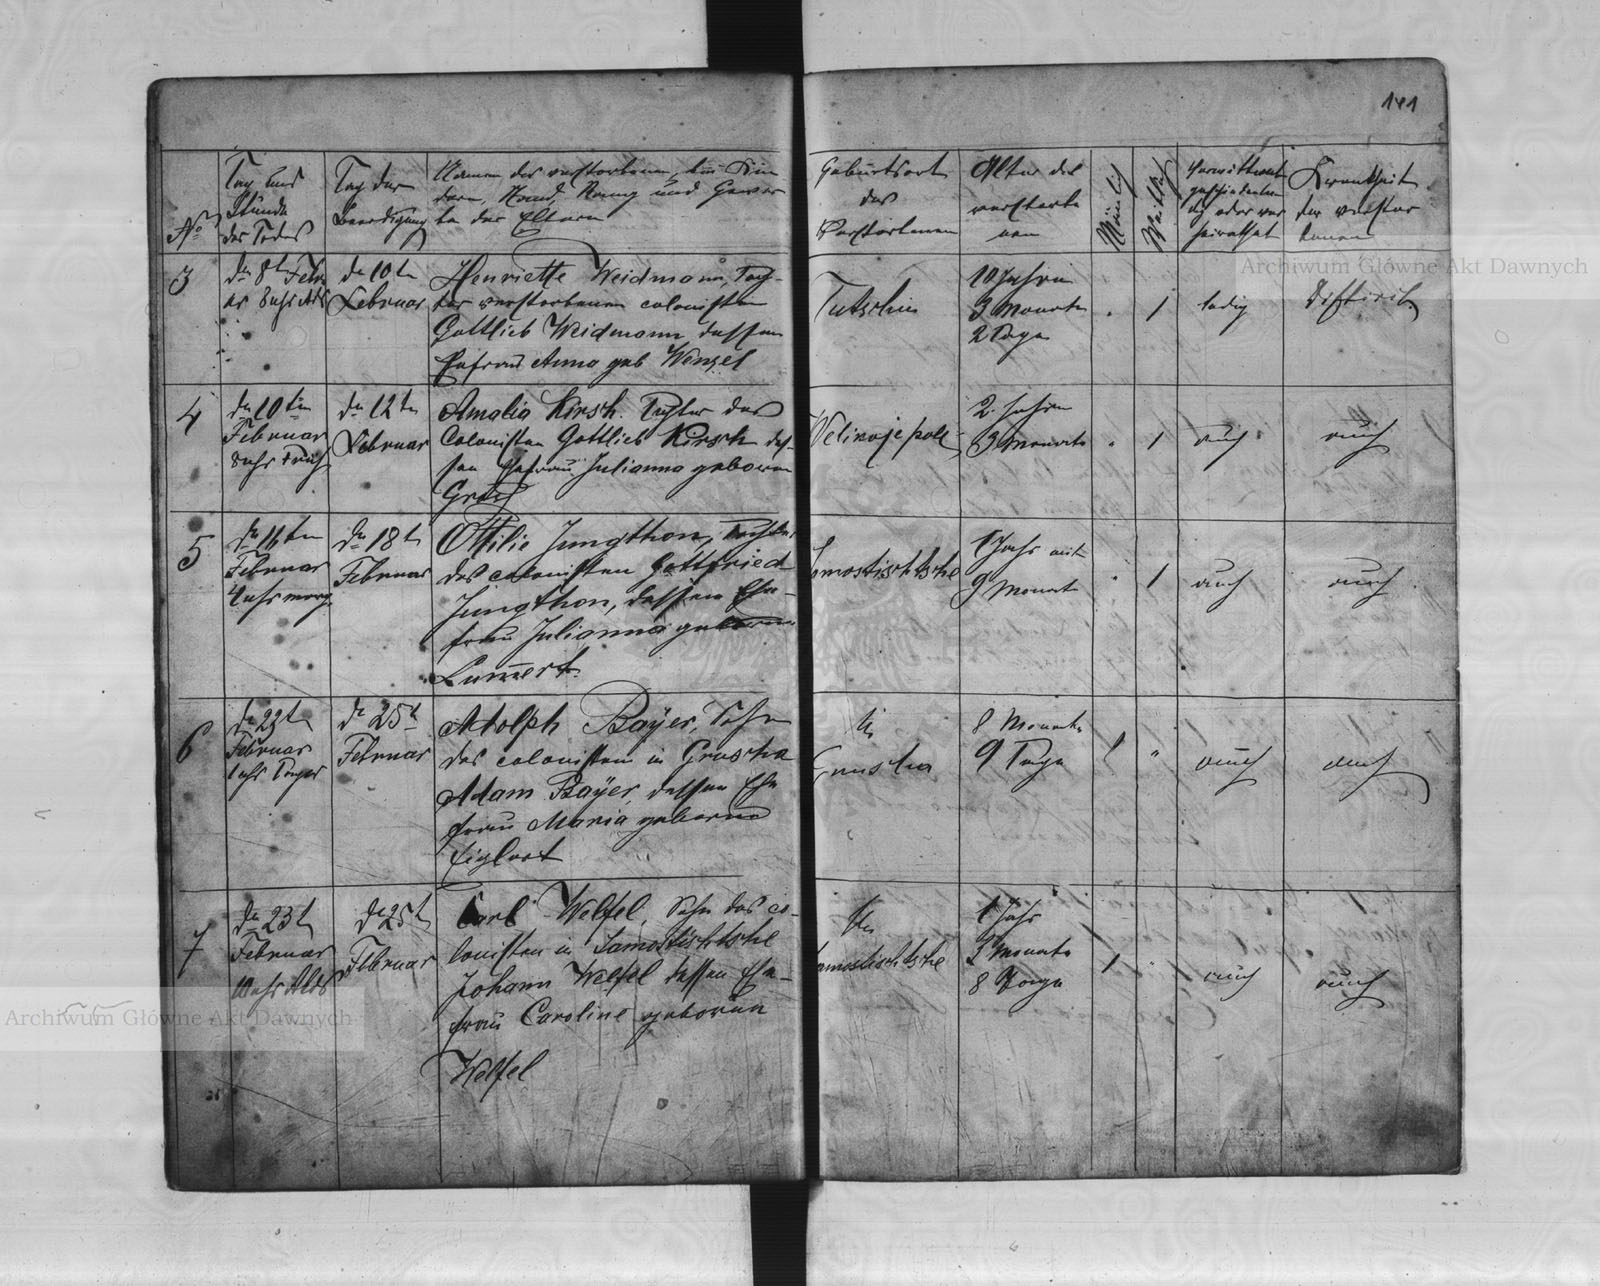 141
No
Tag und
Stunde
des Todes
Tag der
Beerdigung
Namen des verstorbenen, bei Kin
dern, Stand, Rang und Gewer
be der Eltern
Geburtsort
des
Verstorbenen
Alter des
verstorbe
nen
Männlich
Weiblich
Verwittwet
geschieden le
dig oder ver
heirathet
Krankheit
des verstor
benen
3
den 8ten Febru
ar 8 uhr Abds
den 10ten
Februar
Henriette Weidmann, Toch-
ter verstorbenen colonisten
Gottlieb Weidmann dessen
Ehefrau Anna geb Wenzel
Tutschin
10 Jahren
3 Monate
2 Tage
1
ledig
Diftirit
4
den 10ten
Februar
8 uhr Früh
den 12ten
Februar
Amalia Kirsch. Tochter des
Colonisten Gottlieb Kirsch des-
sen Ehefrau Julianna geboren
Welikoje pole
2 Jahre
3 Monate
1
auch
auch
5
den 16ten
Februar
4 uhr morg
den 18ten
Februar
Ottilie Jungthon, Tochter
des colonisten Gottfried
Jungthon, dessen Ehe-
frau Julianna geborene
Lum̅ert
Samostischtsche
1 Jahr mit
9 Monate
1
auch
auch
6
den 23ten
Februar
1 uhr Tages
den 25t
Februar
Adolph Bayer, Sohn
des colonisten in Gruscha
Adam Bayer, dessen Ehe
frau Maria geborne
In
Gruscha
8 Monate
9 Tage
1
auch
auch
7
den 23t
Februar
10 uhr Abds
den 25t
Februar
Carl Welfel, Sohn des co-
lonisten in Samostischtsche
Johann Welfel dessen Ehe-
frau Caroline geboren
Welfel
In
Samostischtsche
1 Jahr
2 Monate
8 Tage
1
auch
auch
Archiwum Główne Akt Dawnych
Archiwum Główne Akt Dawnych